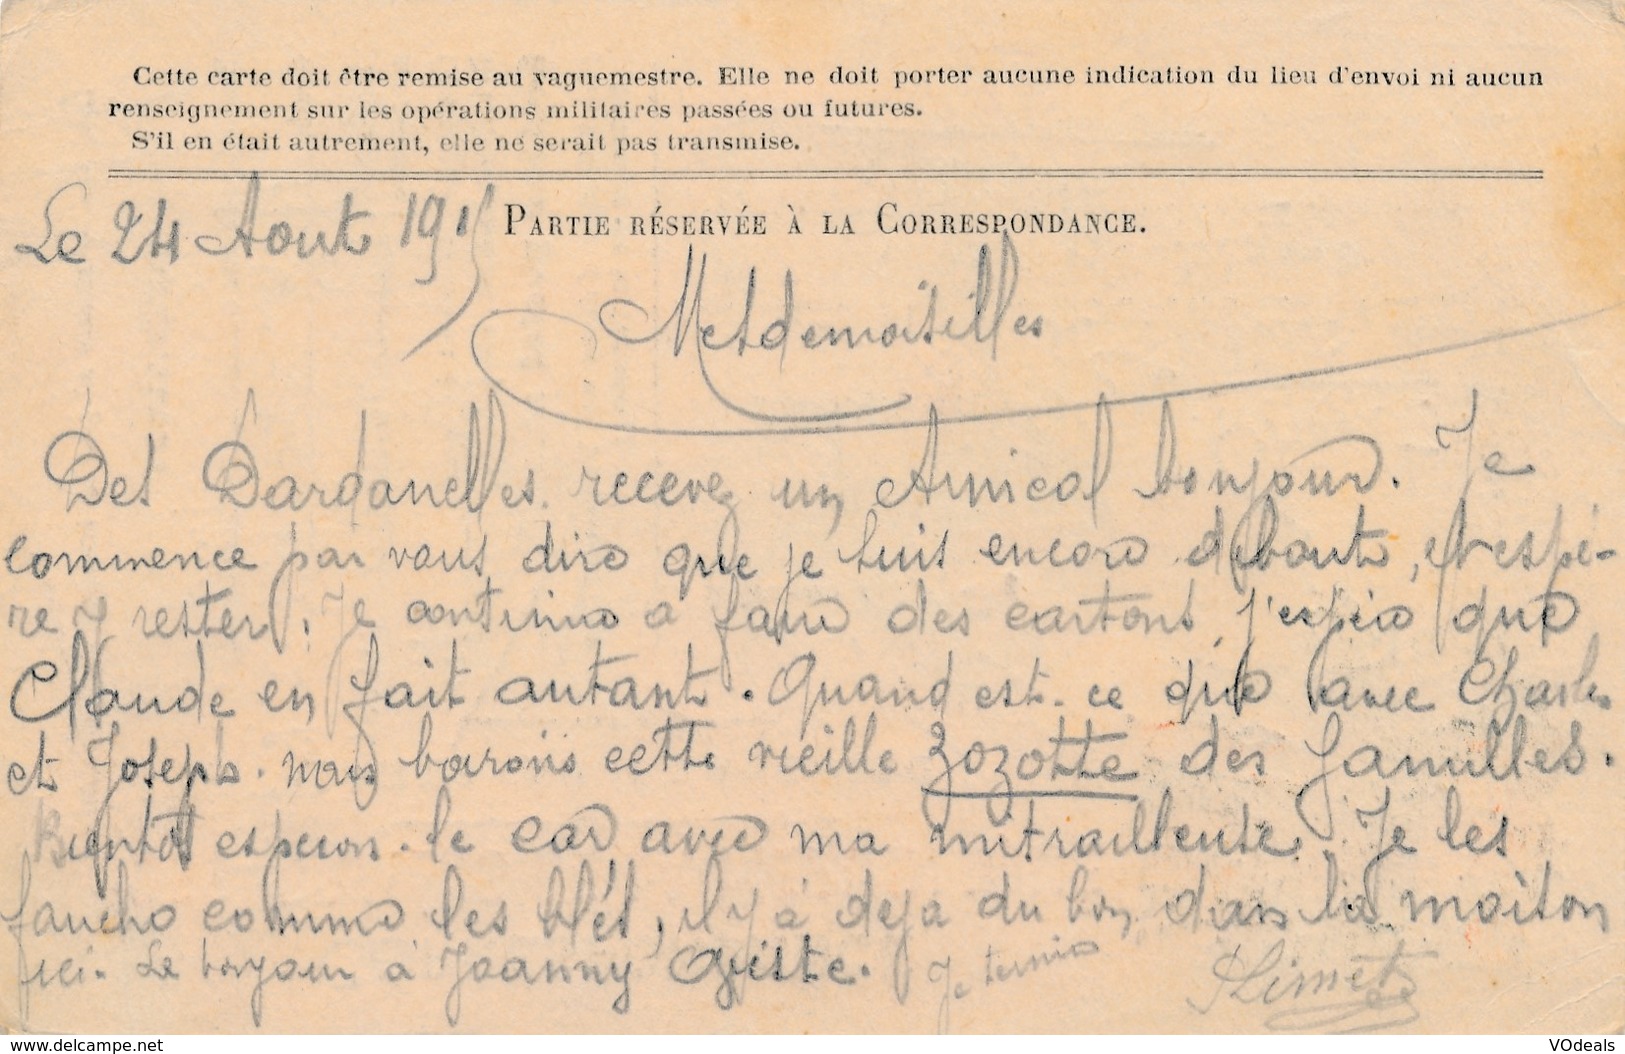 Cette carte doit être remise au vaguemestre. Elle ne doit porter aucune indication du lieu d'envoi ni aucun
renseignement sur les opérations militaires passées ou futures.
S'il en était autrement, elle ne serait pas transmise.
Le 24 Aout 1915
PARTIE RÉSERVÉE À LA CORRESPONDANCE.
Mesdemoiselles
Des Dardanelles recevez un Amical bonjour. Je
commence par vous dire que je suis encore debout, et espè-
re y rester. Je continue a faire des cartons, j'espère que
Claude en fait autant. Quand est-ce que avec Charles
et Joseph. nous barons cette vieille zozotte des familles.
Bientot esperons-le car avec ma mitrailleuse. Je les
fauche comme les blés, il y à deja du bon dans la moison
ici. Le bonjour à Joanny Giste. Je termine